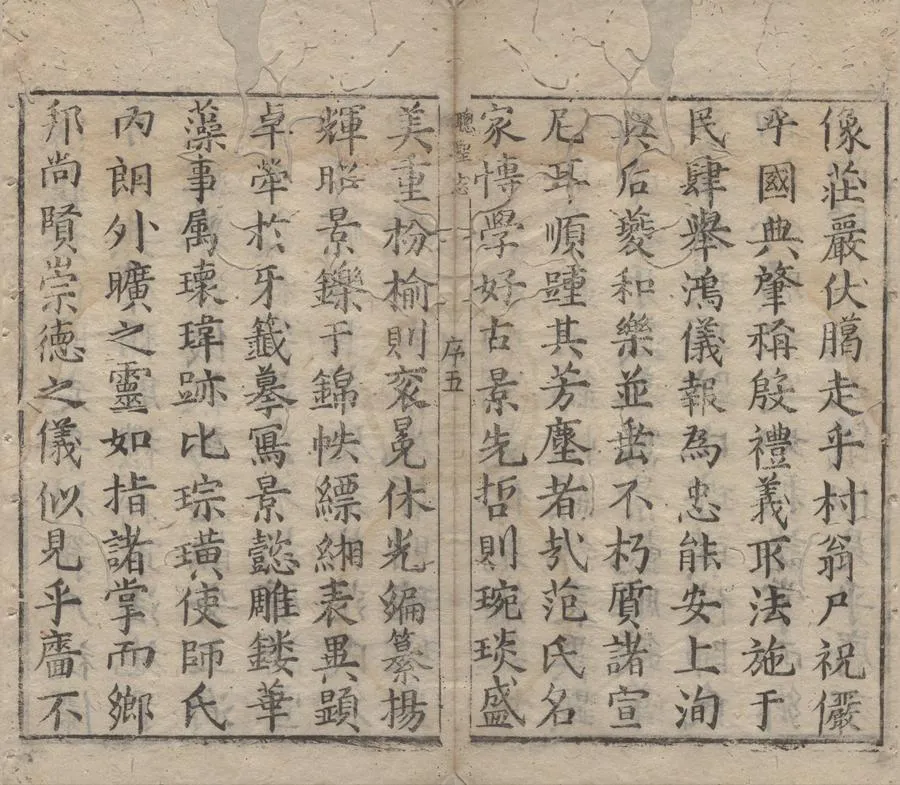 像莊嚴伏臈走乎村翁尸祝儼
乎國典肇稱殷禮義取法施于
民肆舉鴻儀報為忠能安上洵
與后夔和樂並垂不朽質諸宣
尼耳順踵其芳塵者㢤范氏名
家慱學好古景先哲則琬琰盛
聰聖志
序五
美重枌榆則衮冕休光編纂揚
輝昭景鑠于錦帙縹緗表異顕
卓犖於牙籤摹寫景懿雕鏤華
藻事属瓌瑋跡比琮璜使師氏
內朗外曠之靈如指諸掌而鄉
邦尚賢崇德之儀似見乎牆不